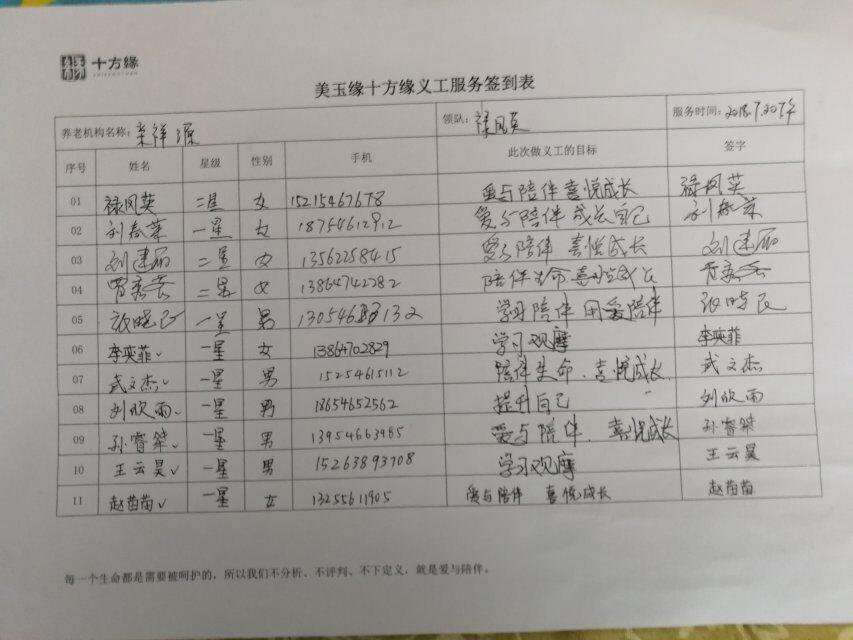 十方缘
SHIFANGYUAN
美玉缘十方缘义工服务签到表
养老机构名称: 祥源 领队: 禄凤英 服务时间: 2018.7.20下午
序号 姓名 星级 性别 手机 此次做义工的目标 签字
01 禄凤英 二星 女 15215467678 爱与陪伴 喜悦成长 禄凤英
02 刘春荣 一星 女 18754612912 爱与陪伴 成长自己 刘春荣
03 刘建丽 二星 女 13562258415 爱与陪伴 喜悦成长 刘建丽
04 二星 女 13864742282 陪伴生命 喜悦成长
05 张晓民 一星 男 130546 132 学习陪伴 用爱陪伴 张晓民
06 李英菲 一星 女 13864702829 学习观摩 李英菲
07 武文杰 一星 男 15254615112 陪伴生命、喜悦成长 武文杰
08 刘欣雨 一星 男 18654652562 提升自己 刘欣雨
09 孙睿桀 一星 男 13954663985 爱与陪伴、喜悦成长 孙睿桀
10 王云昊 一星 男 15263893708 学习观摩 王云昊
11 赵苗苗 一星 女 13255611905 爱与陪伴 喜悦成长 赵苗苗
每一个生命都是需要被呵护的，所以我们不分析、不评判、不下定义，就是爱与陪伴。